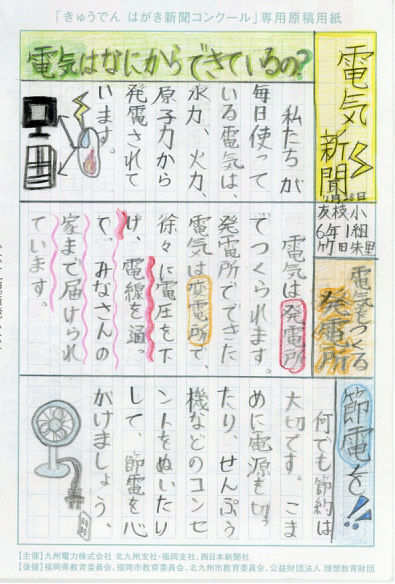 「きゅうでん はがき新聞コンクール」専用原稿用紙
電気新聞
友枝小
6年1組
朱里
電気はなにからできているの?
私たちが
毎日使って
いる電気は、
水力、火力、
原子力から
発電されて
います。
電気をつくる
発電所
電気は発電所
でつくられます。
発電所でできた
電気は変電所で、
徐々に電圧を下
げ、電線を通っ
て、みなさんの
家まで届けられ
ています。
節電を!!
何でも節約は
大切です。こま
めに電源を切っ
たり、せんぷう
機などのコンセ
ントをぬいたり
して、節電を心
がけましょう。
【主催】九州電力株式会社 北九州支社・福岡支社、西日本新聞社
【後援】福岡県教育委員会、福岡市教育委員会、北九州市教育委員会、公益財団法人 理想教育財団